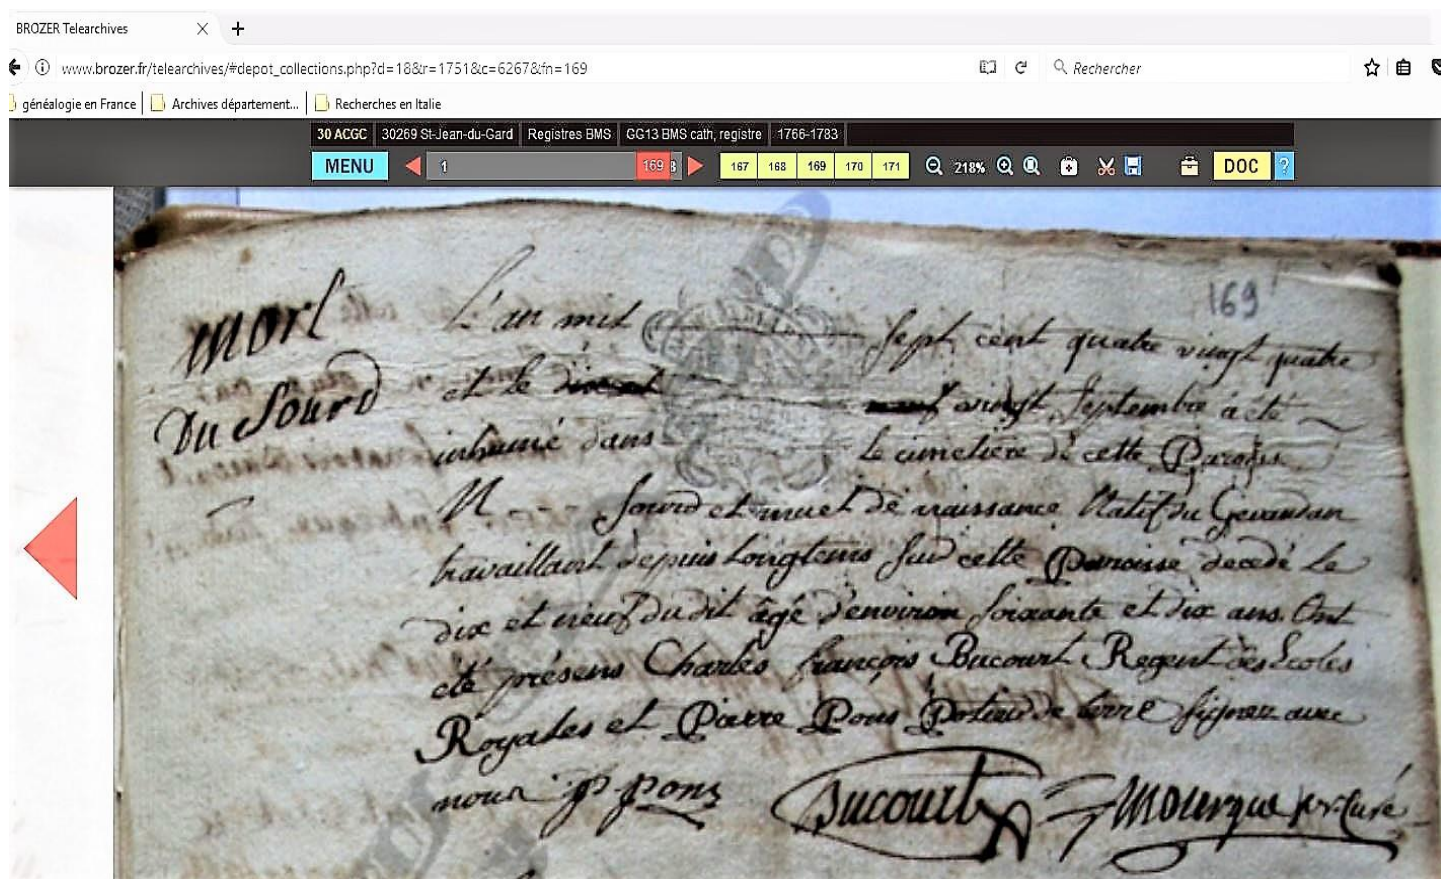 BROZER Telearchives
www.brozer.fr/telearchives/#depot_collections.php?d=18&r=1751&c=6267&fn=169
Rechercher
généalogie en France
Archives département...
Recherches en Italie
30 ACGC 30269 St-Jean-du-Gard Registres BMS GG13 BMS cath, registre 1766-1783
MENU 1 169 167 168 169 170 171 218% DOC ?
169
mort
Du Sourd
L'an mil sept cent quatre vingt quatre
et le vingt Septembre a été
inhumé dans le cimetière de cette Paroisse
N sourd et muet de naissance Natif du Gevaudan
travaillant depuis longtems sur cette Paroisse decedé le
dix et neuf dudit âgé d'environ soixante et dix ans. Ont
été présens Charles françois Bucourt Regent des Ecoles
Royales et Pierre Pons Potier de terre signez avec
nous P pons Bucourt Mourgue pr. Curé